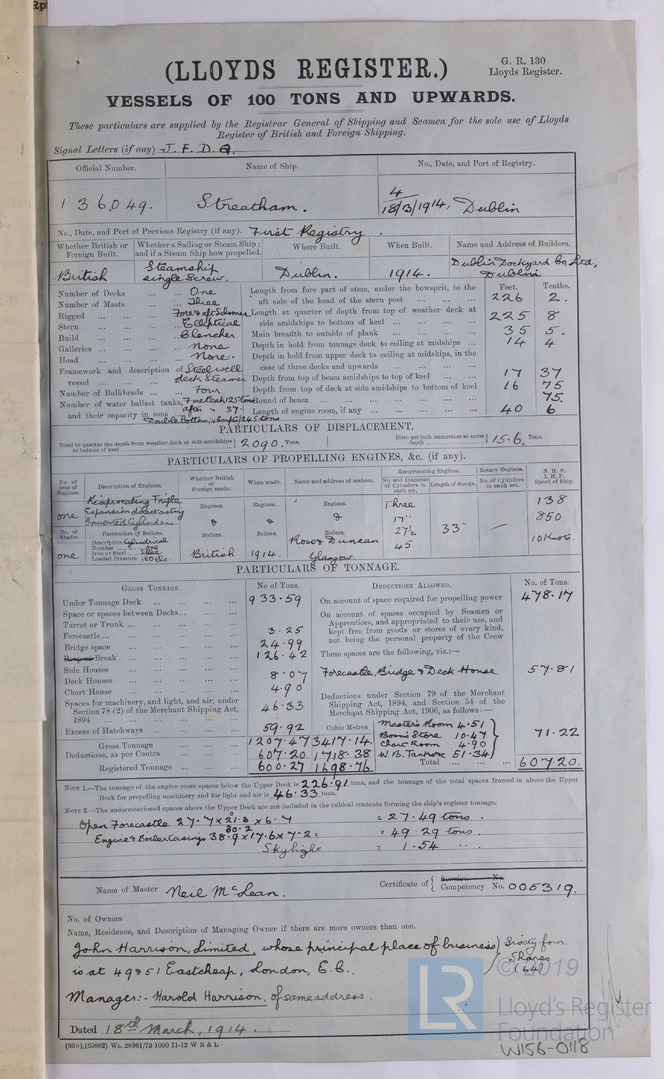 Rp
(LLOYDS REGISTER.)
G. R. 130
Lloyds Register.
VESSELS OF 100 TONS AND UPWARDS.
These particulars are supplied by the Registrar General of Shipping and Seamen for the sole use of Lloyds
Register of British and Foreign Shipping.
Signal Letters (if any) J. F. D. Q.
Official Number. Name of Ship. No., Date, and Port of Registry.
136,049. Streatham. 4/18/3/1914, Dublin
No., Date, and Port of Previous Registry (if any). First Registry.
Whether British or Foreign built. Whether a Sailing or Steam Ship; and if a Steam Ship how propelled. Where Built. When Built. Name and Address of Builders.
British Steamship single Screw. Dublin. 1914. Dublin Dockyard Co Ltd, Dublin
Feet. Tenths.
Number of Decks ... One
Number of Masts ... Three
Rigged ... Fore & aft Schooner
Stern ... Elliptical
Build ... Clencher
Galleries ... None
Head ... None.
Framework and description of vessel ... Steel well deck Steamer
Number of Bulkheads ... Four
Number of water ballast tanks, and their capacity in tons Forepeak 125 tons after " 37 " Double Bottom, 245 tons
Length from fore part of stem, under the bowsprit, to the aft side of the head of the stern post ... 226 2.
Length at quarter of depth from top of weather deck at side amidships to bottom of keel ... 225 8
Main breadth to outside of plank ... 35 5.
Depth in hold from tonnage deck to ceiling at midships ... 14 4
Depth in hold from upper deck to ceiling at midships, in the case of three decks and upwards ...
Depth from top of beam amidships to top of keel ... 17 37
Depth from top of deck at side amidships to bottom of keel 16 75
Round of beam ... 75.
Length of engine room, if any ... 40 6
PARTICULARS OF DISPLACEMENT.
Total to quarter the depth from weather deck at side amidships to bottom of keel 2090. Tons. Ditto per inch immersion at same depth 15.6. Tons.
PARTICULARS OF PROPELLING ENGINES, &c. (if any).
No. of sets of Engines. Description of Engines. Whether British or Foreign made. When made. Name and address of makers. Reciprocating Engines. Rotary Engines. N. H. P. I. H. P. Speed of Ship.
No. and Diameter of Cylinders in each set. Length of Stroke. No. of Cylinders in each set.
one Reciprocating Triple Expansion direct acting Inverted Cylinders Engines. Engines. Engines. Three 138
& & & 17" 27½ 45 33" — 850
No. of Shafts. Particulars of Boilers. Boilers. Boilers. Boilers.
one Description Cylindrical Number Iron or Steel Steel Loaded Pressure 180 lbs. British 1914. Ross & Duncan Glasgow 10 Knots.
PARTICULARS OF TONNAGE.
GROSS TONNAGE. No of Tons. DEDUCTIONS ALLOWED. No. of Tons.
Under Tonnage Deck ... 933.59
Space or spaces between Decks ...
Turret or Trunk ...
Forecastle ... 3.25
Bridge space ... 24.99
Break ... 126.42
Side Houses ...
Deck Houses ... 8.07
Chart House ... 4.90
Spaces for machinery, and light, and air, under Section 78 (2) of the Merchant Shipping Act, 1894 ... 46.33
Excess of Hatchways ... 59.92 Cubic Metres
Gross Tonnage ... 1207.47 3417.14.
Deductions, as per Contra ... 607.20 1718.38
Registered Tonnage ... 600.27 1698.76
On account of space required for propelling power 478.17
On account of spaces occupied by Seamen or Apprentices, and appropriated to their use, and kept free from goods or stores of every kind, not being the personal property of the Crew
These spaces are the following, viz.:—
Forecastle, Bridge & Deck House. 57.81
Deductions under Section 79 of the Merchant Shipping Act, 1894, and Section 54 of the Merchant Shipping Act, 1906, as follows:—
Master's Room 4.51
Bosn's Store 10.47
Chart Room 4.90
W. B. Tanks &c 51.34 71.22
Total ... 607.20.
NOTE 1.—The tonnage of the engine room spaces below the Upper Deck is 226.91 tons, and the tonnage of the total spaces framed in above the Upper
Deck for propelling machinery and for light and air is 46.33 tons.
NOTE 2.—The undermentioned spaces above the Upper Deck are not included in the cubical contents forming the ship's register tonnage.
Open Forecastle 27.7 x 21.3 x 6.7 = 27.49 tons.
30.2
Engine & Boiler Casings 38.9 x 17.6 x 7.2 = 49.29 tons
Skylight = 1.54 " .
Name of Master Neil McLean. Certificate of Service No. Competency No. 005319.
No. of Owners
Name, Residence, and Description of Managing Owner if there are more owners than one.
John Harrison, Limited, whose principal place of business Sixty four
is at 49 & 51 Eastcheap, London, E.C., Shares (64)
Manager:- Harold Harrison, of same address.
Dated 18th March, 1914.
(83o),(69862) Wt. 28981/72 1000 11-12 W B & L
© 2019
LR
Lloyd's Register
Foundation
W156-0118